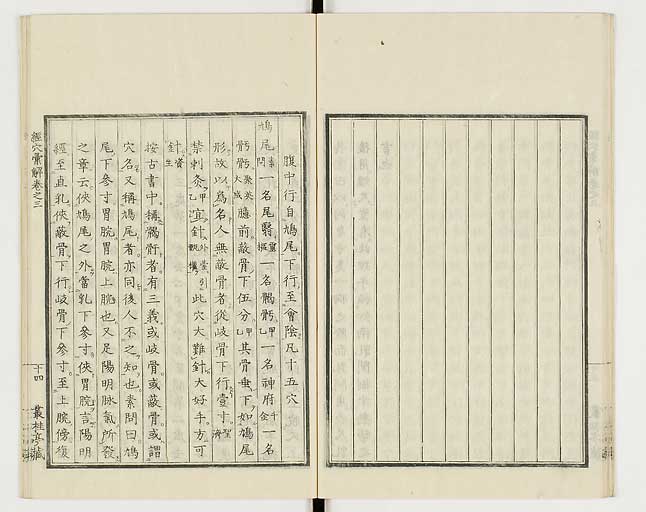 腹中行自鳩尾下行至會陰凡十五穴
鳩尾素問一名尾翳靈樞一名𩩲骬甲乙一名神府千金一名
𩩲骬聚英大成臆前蔽骨下伍分甲乙其骨垂下如鳩尾
形故以爲名人無蔽骨者從岐骨下行壹寸聖濟
禁刺灸甲乙宜針外臺引甄權此穴大難針大好手方可
針資生
按古書中稱𩩲骬者有三義或岐骨或蔽骨或謂
穴名又稱鳩尾者亦同後人不之知也素問曰鳩
尾下參寸胃脘胃脘上脘也又足陽明脉氣所發
之章云俠鳩尾之外當乳下參寸俠胃脘言陽明
經至直乳俠蔽骨下行岐骨下參寸至上脘傍復
經穴彙解卷之三
十四
叢桂亭藏